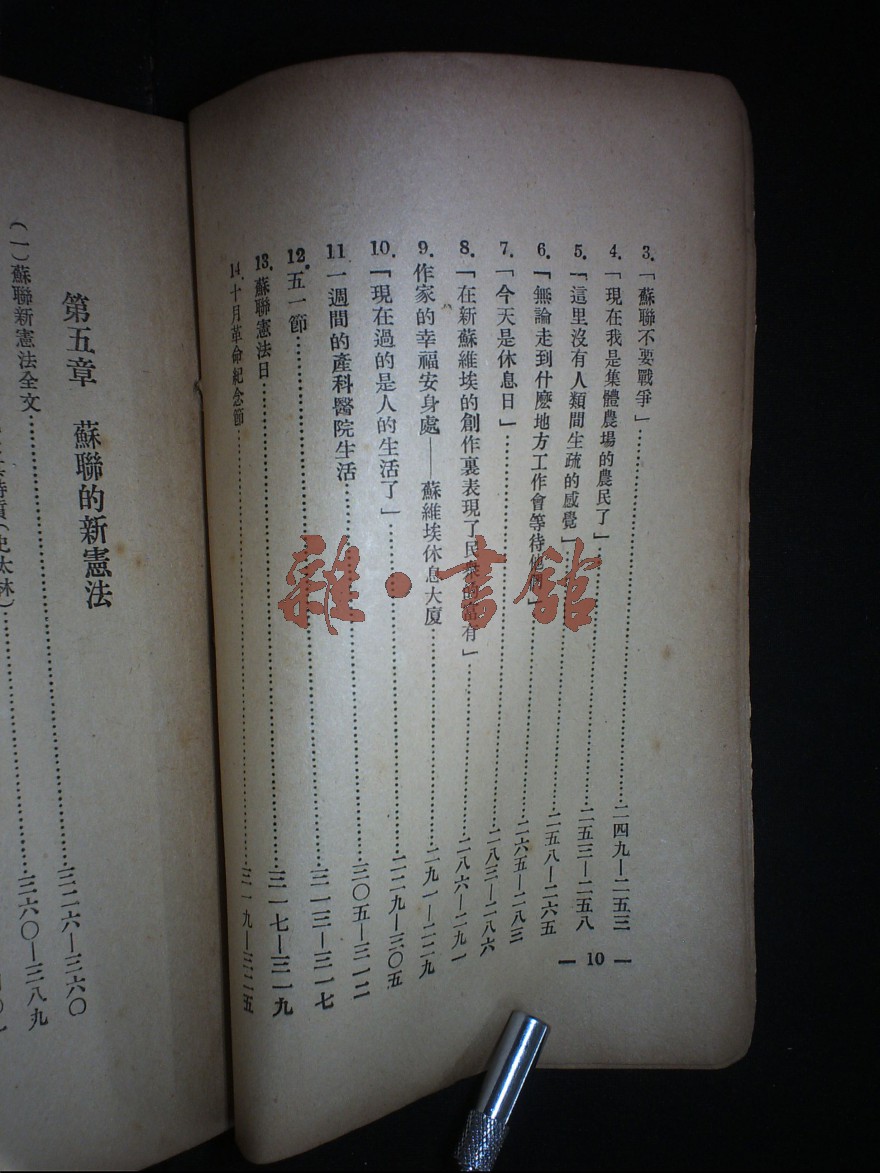 3.「蘇聯不要戰爭」……二四九—二五三
4.「現在我是集體農場的農民了」……二五三—二五八
5.「這里沒有人類間生疏的感覺」……二五八—二六五
6.「無論走到什麽地方工作會等待他們」……二六五—二八三
7.「今天是休息日」……二八三—二八六
8.「在新蘇維埃的創作裏表現了民衆的富有」……二八六—二九一
9.作家的幸福安身處——蘇維埃休息大廈……二九一—二二九
10.「現在過的是人的生活了」……二二九—三〇五
11一週間的產科醫院生活……三〇五—三一二
12.五一節……三一三—三一七
13.蘇聯憲法日……三一七—三一九
14.十月革命紀念節……三一九—三二五
— 10 —
第五章 蘇聯的新憲法
(一)蘇聯新憲法全文……三二六—三六〇
(史太林)……三六〇—三八九
雜·書館